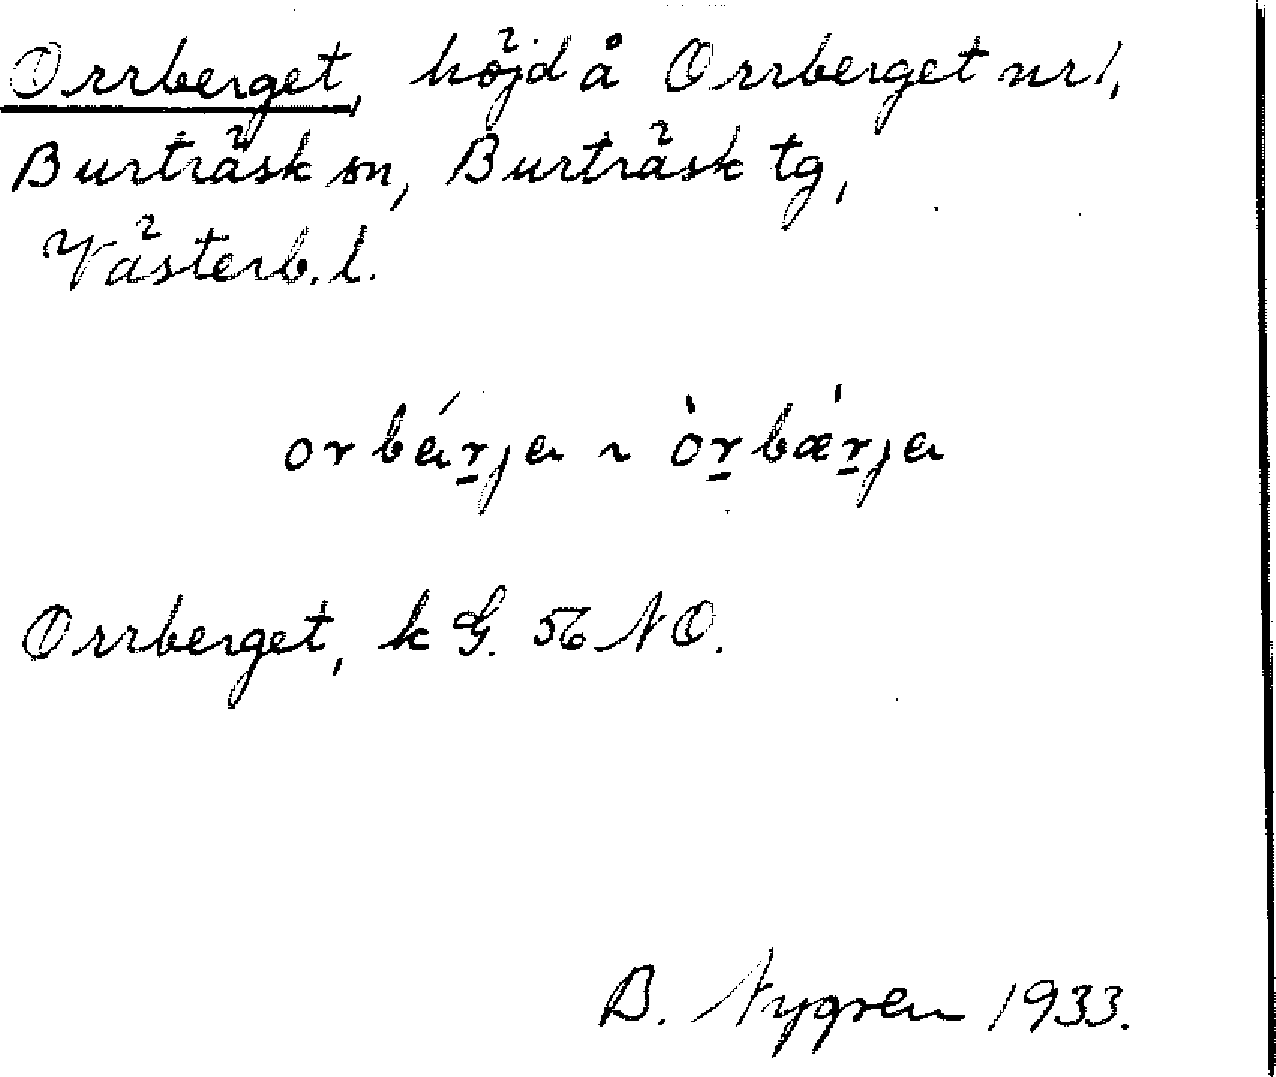 Orrberget, höjd å Orrberget nr 1,
Burträsk sn, Burträsk tg,
Västerb. l.
orbǽr̠ja ~ òr̠bær̠ja
Orrberget, k G. 56 NO.
B. Nygren 1933.